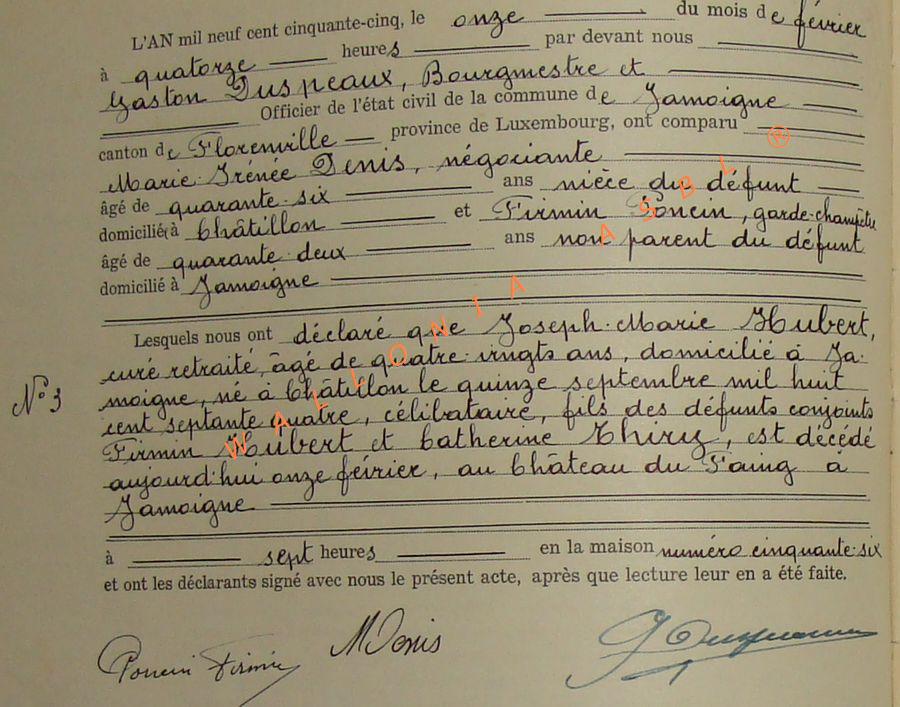 L'AN mil neuf cent cinquante-cinq, le onze du mois de février
à quatorze heures par devant nous
Gaston Duspeaux, Bourgmestre et
Officier de l'état civil de la commune de Jamoigne
canton de Florenville province de Luxembourg, ont comparu
Marie-Irénée Denis, négociante
âgé de quarante-six ans nièce du défunt
domicilié à Châtillon et Firmin Poncin, garde-champêtre
âgé de quarante deux ans non parent du défunt
domicilié à Jamoigne
Lesquels nous ont déclaré que Joseph-Marie Hubert,
curé retraité, âgé de quatre-vingts ans, domicilié à Ja-
moigne, né à Châtillon le quinze septembre mil huit
cent septante quatre, célibataire, fils des défunts conjoints
Firmin Hubert et Catherine Thiry, est décédé
aujourd'hui onze février, au Château du Faing à
Jamoigne
N° 3
à sept heures en la maison numéro cinquante-six
et ont les déclarants signé avec nous le présent acte, après que lecture leur en a été faite.
Poncin Firmin MDenis
WALLONIA ASBL ®